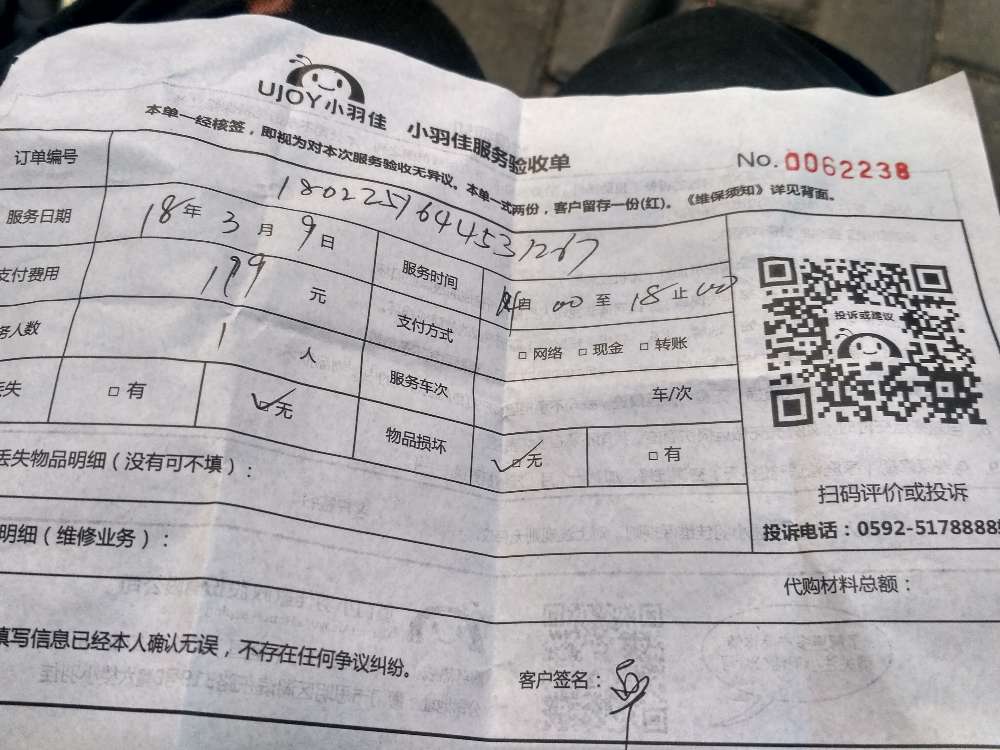 UJOY小羽佳 小羽佳服务验收单
No. 0062238
本单一经核签，即视为对本次服务验收无异议。本单一式两份，客户留存一份(红)。《维保须知》详见背面。
订单编号 18022516444531267
服务日期 18年 3月 9日 服务时间 自 00 至 18 止 00
支付费用 199 元 支付方式 □ 网络 □ 现金 □ 转账
务人数 1 人 服务车次 车/次
丢失 □ 有 □ 无 物品损坏 □ 无 □ 有
投诉或建议
丢失物品明细（没有可不填）：
扫码评价或投诉
投诉电话：0592-5178888
明细（维修业务）：
代购材料总额：
填写信息已经本人确认无误，不存在任何争议纠纷。
客户签名：